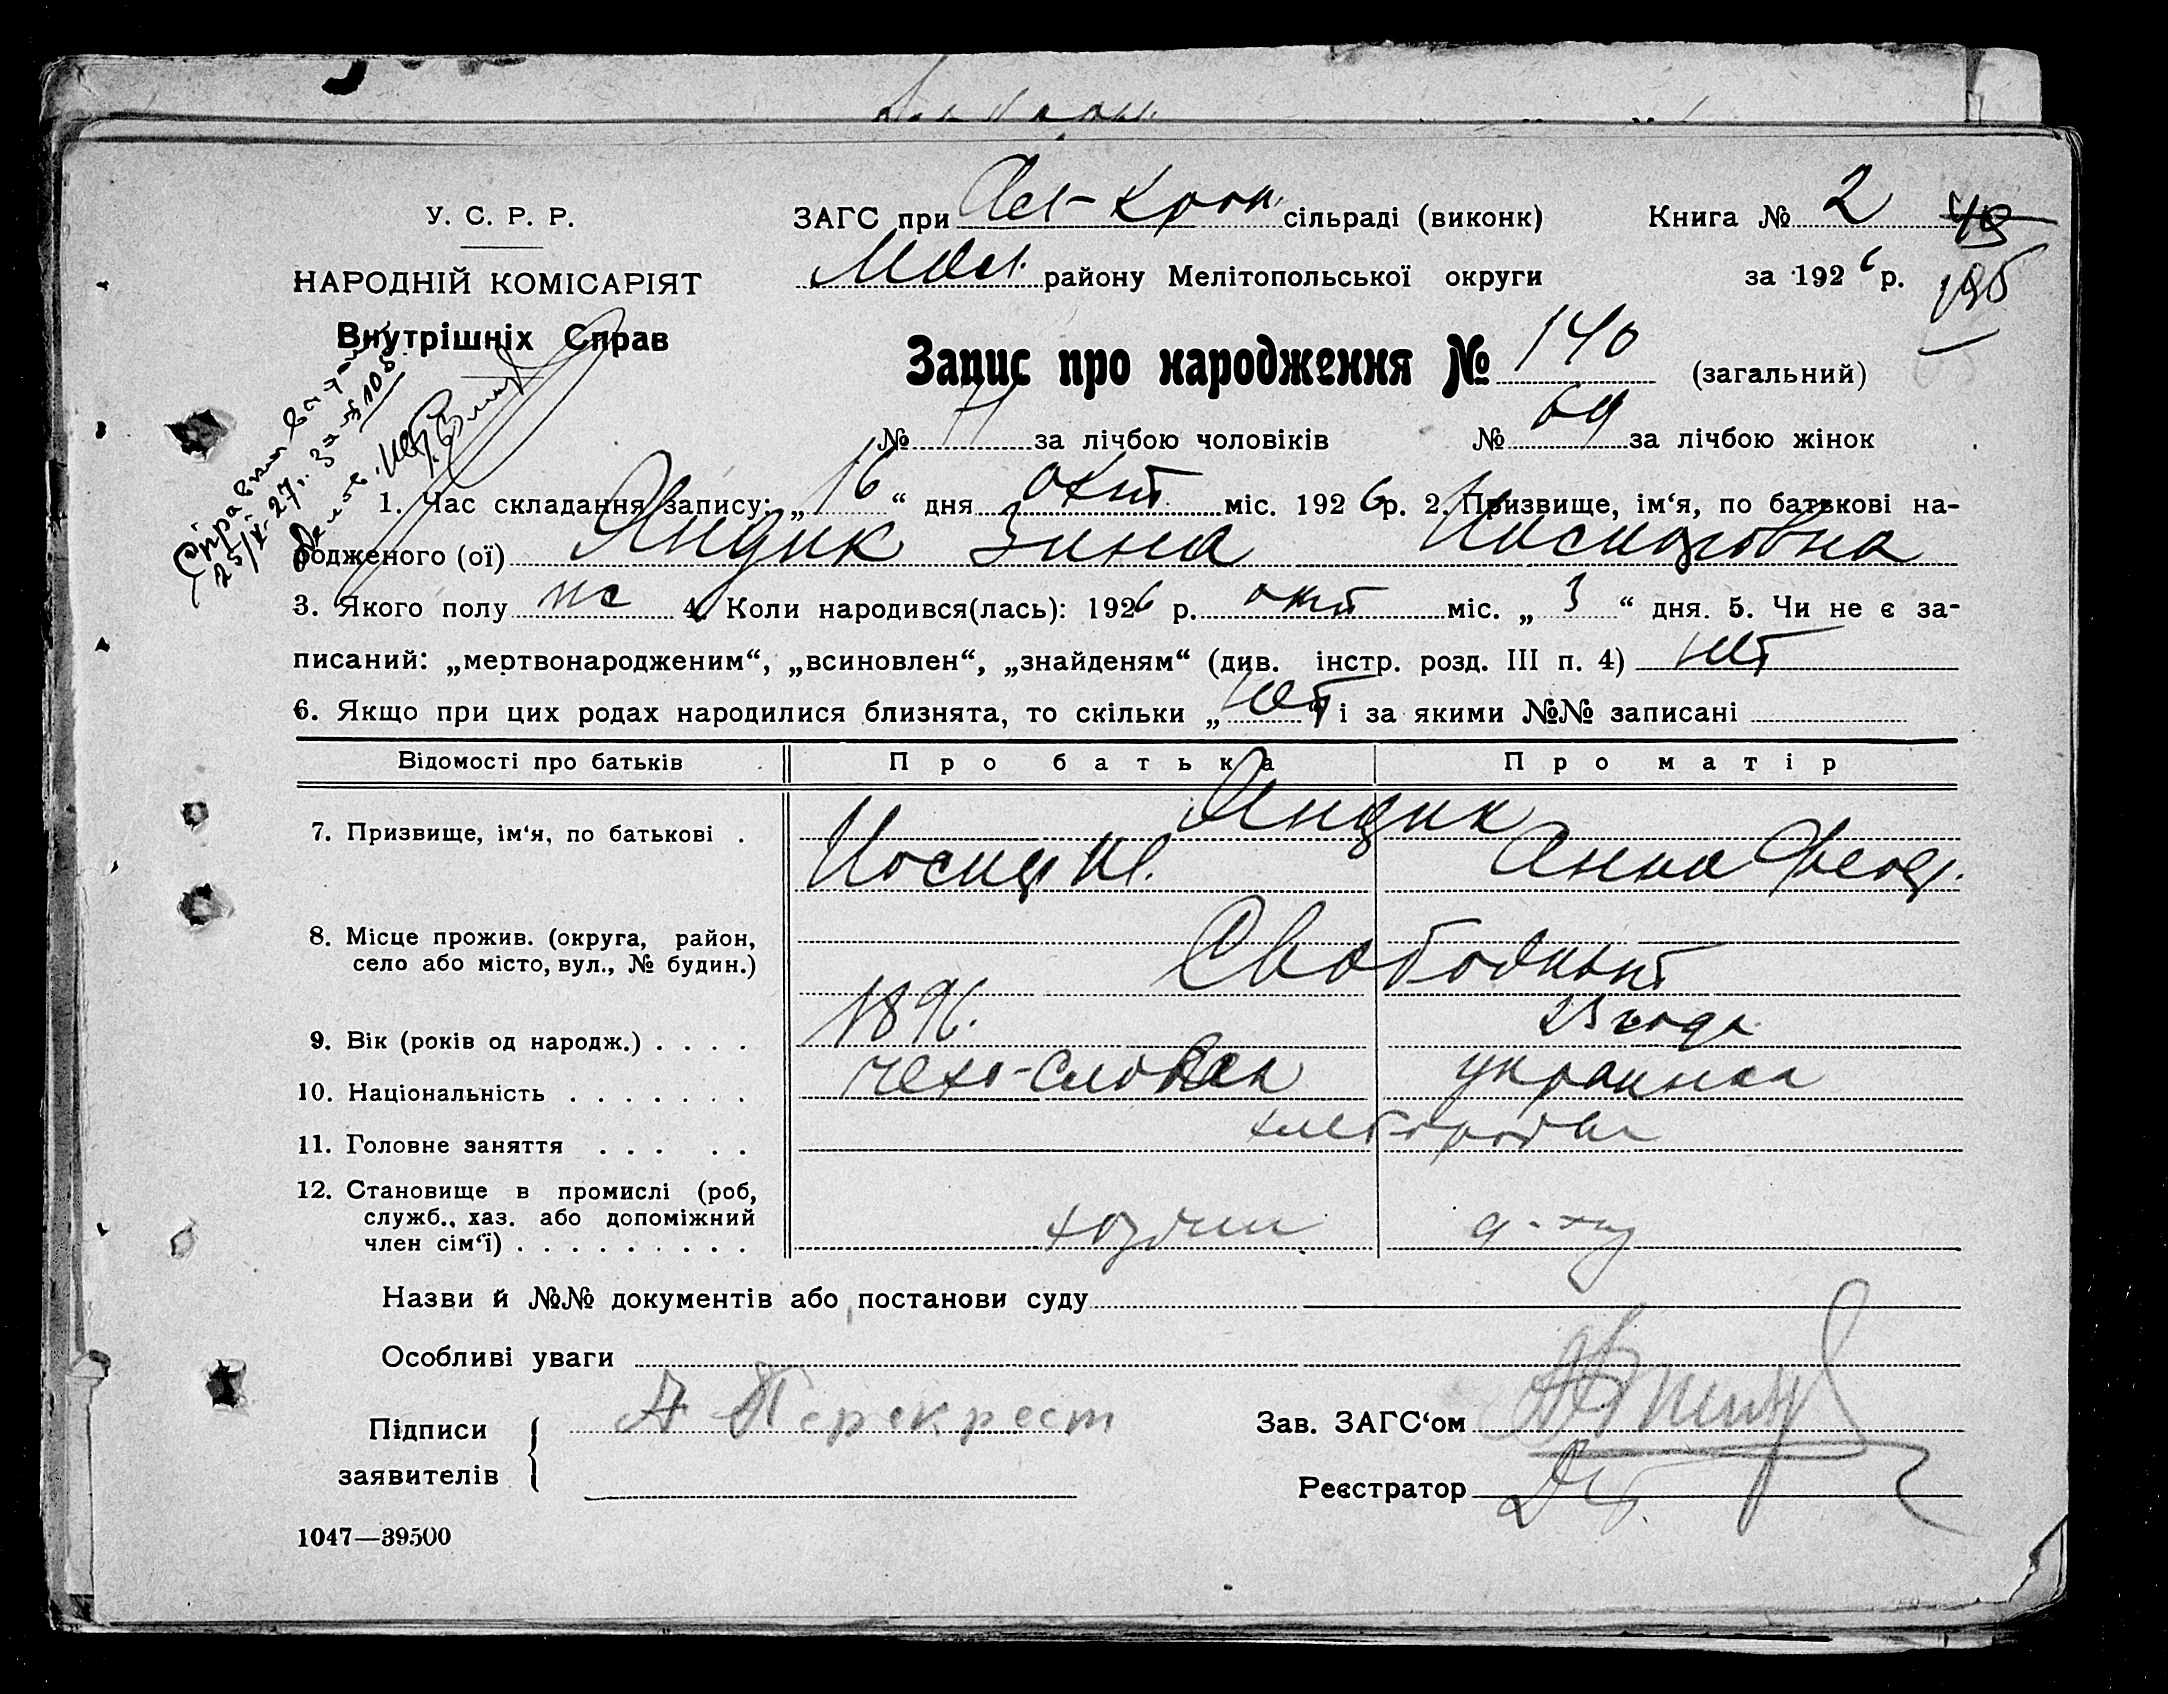 У. С. Р. Р.
НАРОДНІЙ КОМІСАРІЯТ
Внутрішніх Справ
ЗАГС при сільраді (виконк)
району Мелітопольської округи
Книга № 2 48
за 1926 р. 195
Запис про народження № 140 (загальний)
№ 71 за лічбою чоловіків № 69 за лічбою жінок
1. Час складання запису: „ 16 “ дня окт. міс. 1926 р. 2. Призвище, ім‘я, по батькові на-
родженого (ої) Яндик Зина
3. Якого полу жс 4. Коли народився(лась): 1926 р. окт міс. „ 3 “ дня. 5. Чи не є за-
писаний: „мертвонародженим“, „всиновлен“, „знайденям“ (див. інстр. розд. III п. 4) нет
6. Якщо при цих родах народилися близнята, то скільки „ нет “ і за якими №№ записані
Відомості про батьків Про батька Про матір
7. Призвище, ім‘я, по батькові . Яндик
Иосиф И. Анна Феод.
8. Місце прожив. (округа, район,
село або місто, вул., № будин.) Свободный
9. Вік (років од народж.) . . . . 1896. 23 года
10. Національність . . . . . . . чехо-словак украинка
11. Головне заняття . . . . . хлебороб
12. Становище в промислі (роб,
служб., хаз. або допоміжний
член сім‘ї) . . . . . . . . . хозяин д-хоз
Назви й №№ документів або постанови суду
Особливі уваги
Підписи
заявителів
А Перекрест
Зав. ЗАГС‘ом
Реєстратор
1047—39500